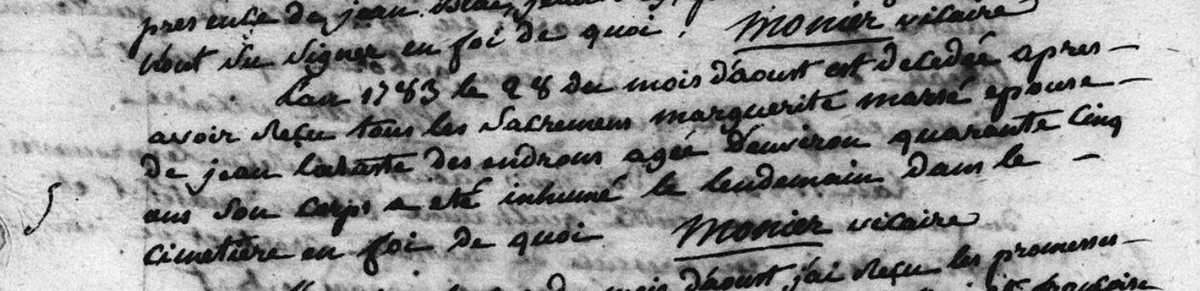 presence de jean
nont su signer en foi de quoi. Monier vicaire
Lan 1783 le 28 du mois d'aoust est decedée apres
avoir reçu tous les sacremens marguerite marsé epouse
de jean lataste des androns agée d'environ quarante cinq
ans son corps a eté inhumé le lendemain dans le
cimetière en foi de quoi Monier vicaire
mois d'aoust j'ai reçu les promesses